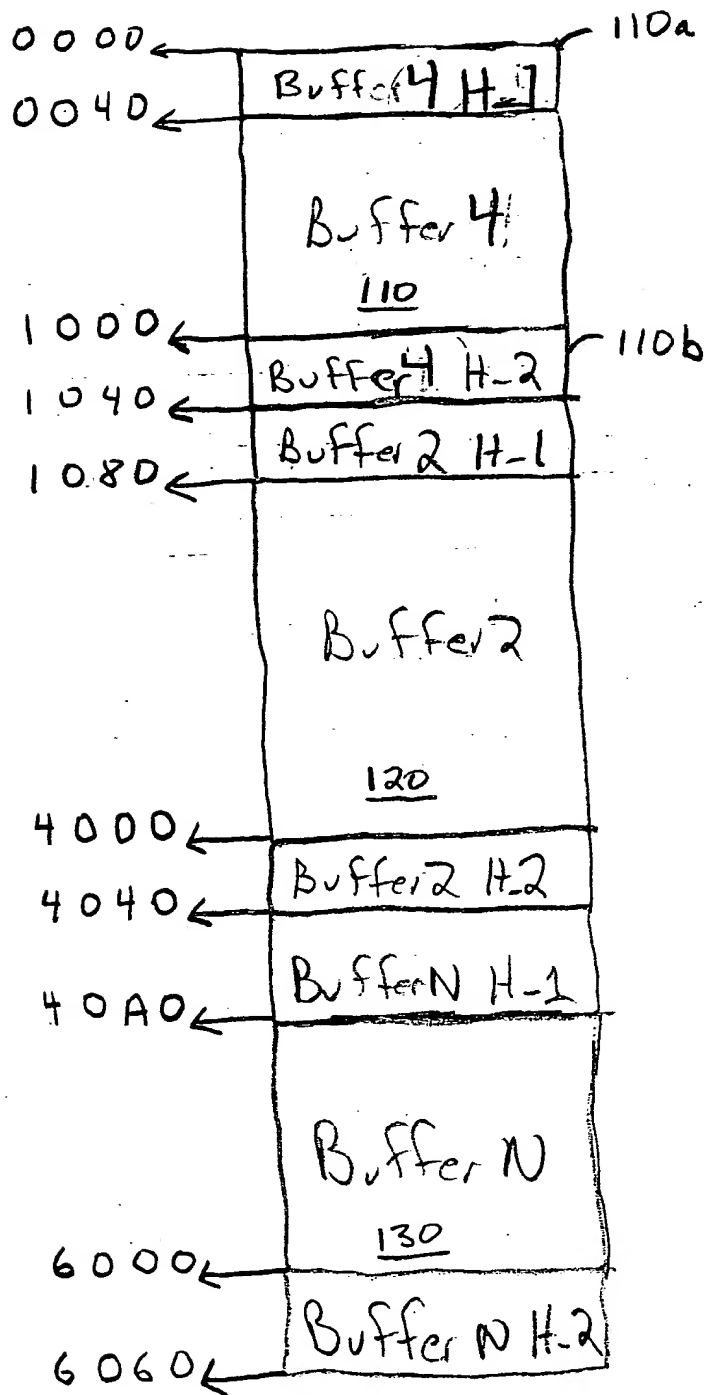 0000
110a
Buffer 4 H-1
0040
Buffer 4
110
1000
110b
Buffer 4 H-2
1040
Buffer 2 H-1
1080
Buffer 2
120
4000
Buffer 2 H-2
4040
Buffer N H-1
40A0
Buffer N
130
6000
Buffer N H-2
6060